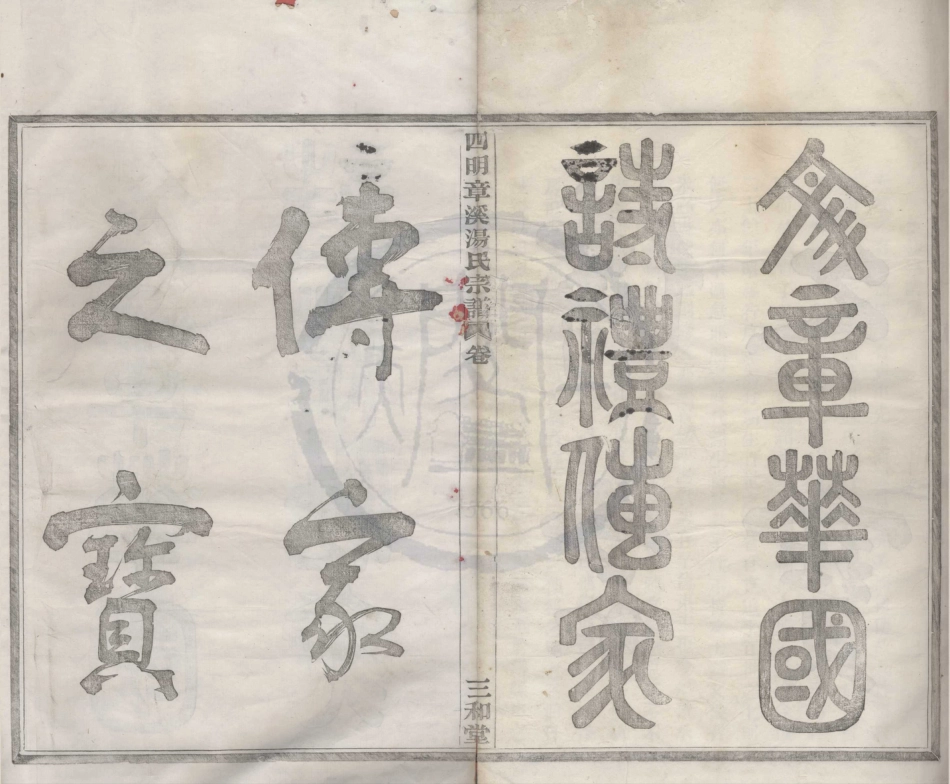 文章華國
詩禮傳家
四明章溪湯氏宗譜 卷
三和堂
傳家
之寶